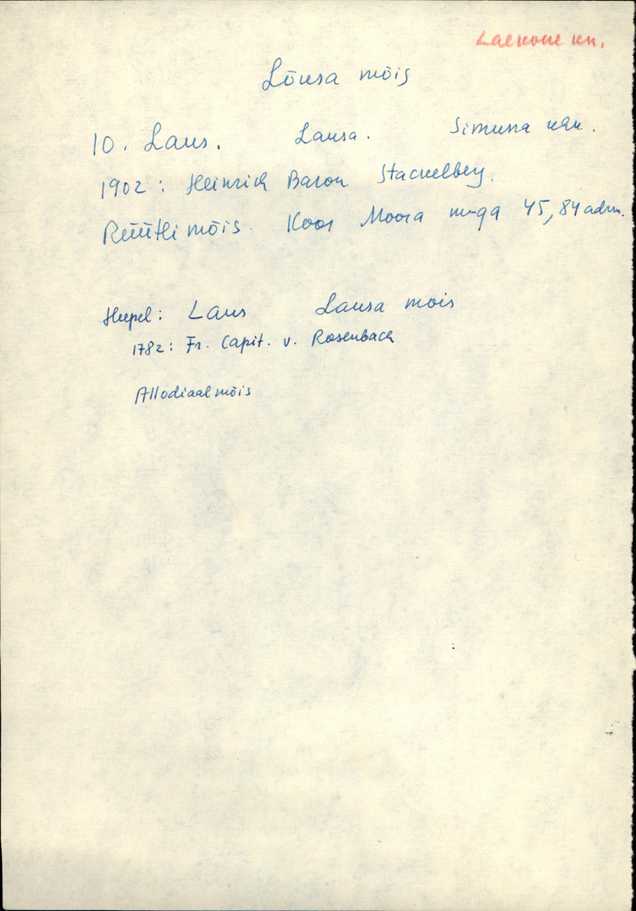 Laekvere kn.
Lõusa mõis
10. Laus. Lausa. Simuna khk.
1902: Heinrich Baron Stackelberg.
Rüütli mõis. Koos Moora m-ga 45,84 adrm.
Hupel: Laus Lausa mois
1782: Fr. Capit. v. Rosenbach
Allodiaalmõis